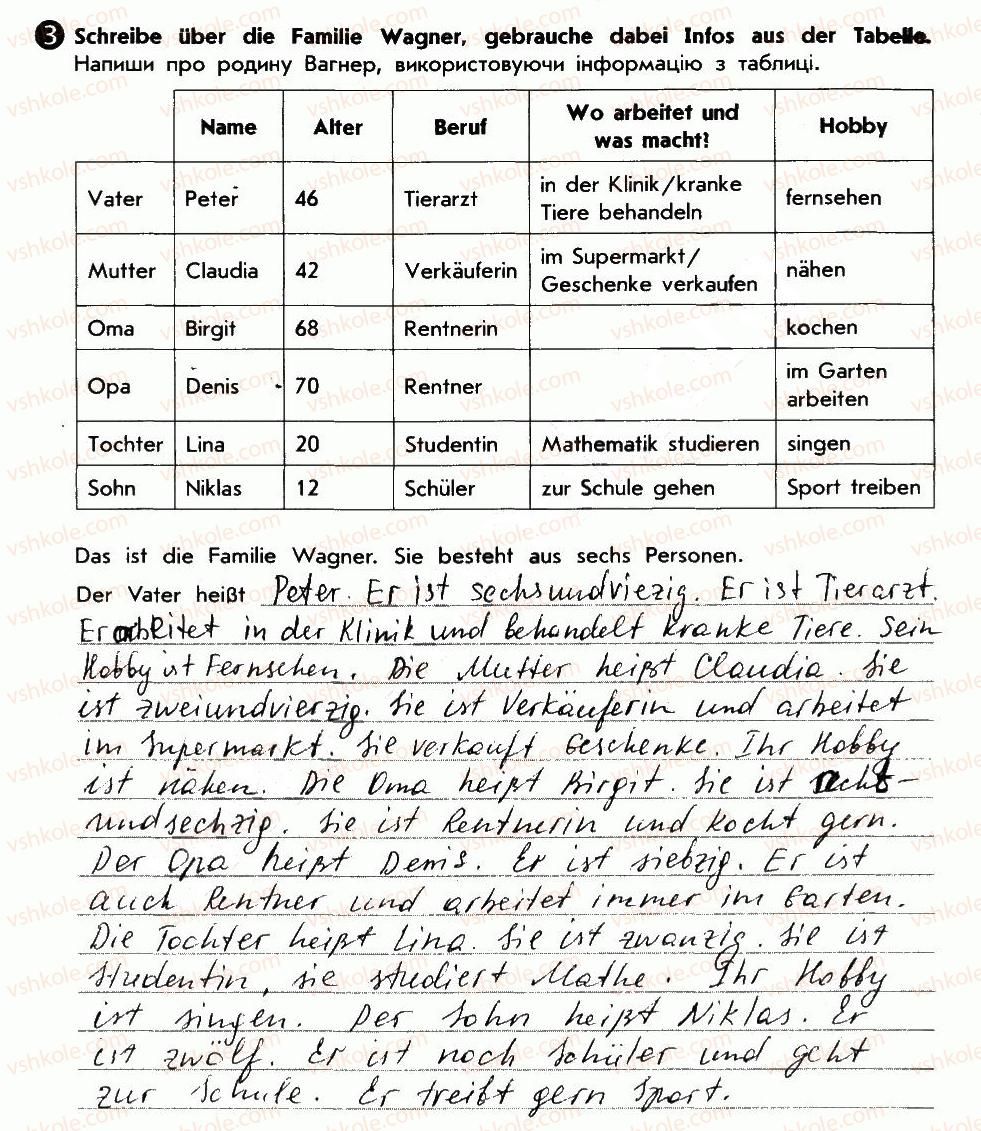 3 Schreibe über die Familie Wagner, gebrauche dabei Infos aus der Tabelle.
Напиши про родину Вагнер, використовуючи інформацію з таблиці.
Name Alter Beruf Wo arbeitet und was macht? Hobby
Vater Peter 46 Tierarzt in der Klinik/kranke Tiere behandeln fernsehen
Mutter Claudia 42 Verkäuferin im Supermarkt/ Geschenke verkaufen nähen
Oma Birgit 68 Rentnerin kochen
Opa Denis 70 Rentner im Garten arbeiten
Tochter Lina 20 Studentin Mathematik studieren singen
Sohn Niklas 12 Schüler zur Schule gehen Sport treiben
Das ist die Familie Wagner. Sie besteht aus sechs Personen.
Der Vater heißt Peter. Er ist sechsundviezig. Er ist Tierarzt.
Er arbeitet in der Klinik und behandelt kranke Tiere. Sein
Hobby ist Fernsehen. Die Mutter heißt Claudia. Sie
ist zweiundvierzig. Sie ist Verkäuferin und arbeitet
im Supermarkt. Sie verkauft Geschenke. Ihr Hobby
ist nähen. Die Oma heißt Birgit. Sie ist acht-
undsechzig. Sie ist Rentnerin und kocht gern.
Der Opa heißt Denis. Er ist siebzig. Er ist
auch Rentner und arbeitet immer im Garten.
Die Tochter heißt Lina. Sie ist zwanzig. Sie ist
Studentin, sie studiert Mathe. Ihr Hobby
ist singen. Der Sohn heißt Niklas. Er
ist zwölf. Er ist noch Schüler und geht
zur Schule. Er treibt gern Sport.
vshkole.com